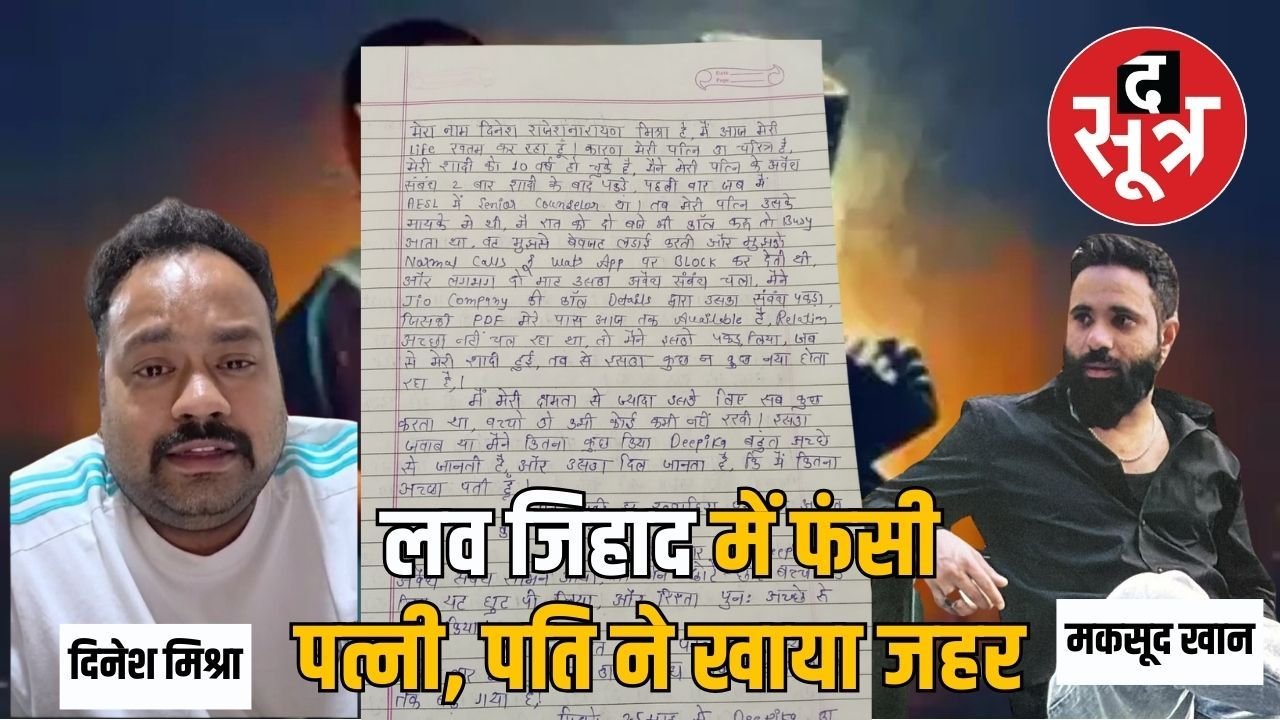 द
सूत्र
मेरा नाम दिनेश राजेशनारायण मिश्रा है, मैं आज मेरी
life खतम कर रहा हूँ। कारण मेरी पत्नि का चरित्र है,
मेरी शादी को 10 वर्ष हो चूके है, मैंने मेरी पत्नि के अवैध
संबंध 2 बार शादी के बाद पकडे, पहली बार जब मैं
AESL में Senior Counselor था। तब मेरी पत्नि उसके
मायके मे थी, मैं रात को दो बजे भी कॉल करू तो Busy
आता था, वह मुझसे बेवजह लडाई करती और मुझको
Normal Calls व Wats App पर BLOCK कर देती थी,
और लगभग दो माह उसका अवैध संबंध चला, मैंने
Jio Company की कॉल Details द्वारा उसका संबंध पकडा,
जिसकी PDF मेरे पास आज तक Available है, Relation
अच्छा नहीं चल रहा था, तो मैंने इसको पकड़ लिया, जब
से मेरी शादी हुई, तब से इसका कुछ न कुछ नया होता
रहा है।
मैं मेरी क्षमता से ज्यादा उसके लिए सब कुछ
करता था, बच्चो को कभी कोई कमी नहीं रखी। इसका
जवाब था मैंने कितना कुछ किया Deepika बहुत अच्छे
से जानती है, और उसका दिल जानता है, कि मैं कितना
अच्छा पती हूँ।
लव जिहाद में फंसी
पत्नी, पति ने खाया जहर
और रिश्ता पुनः अच्छे से
तक
गया है।
में Deepika का
दिनेश मिश्रा
मकसूद खान